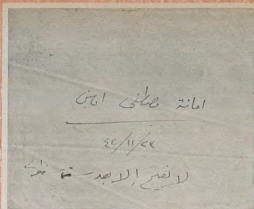 امانة مصطفى امين
٤٢/١١/٢٧
لا تفتح إلا بعد